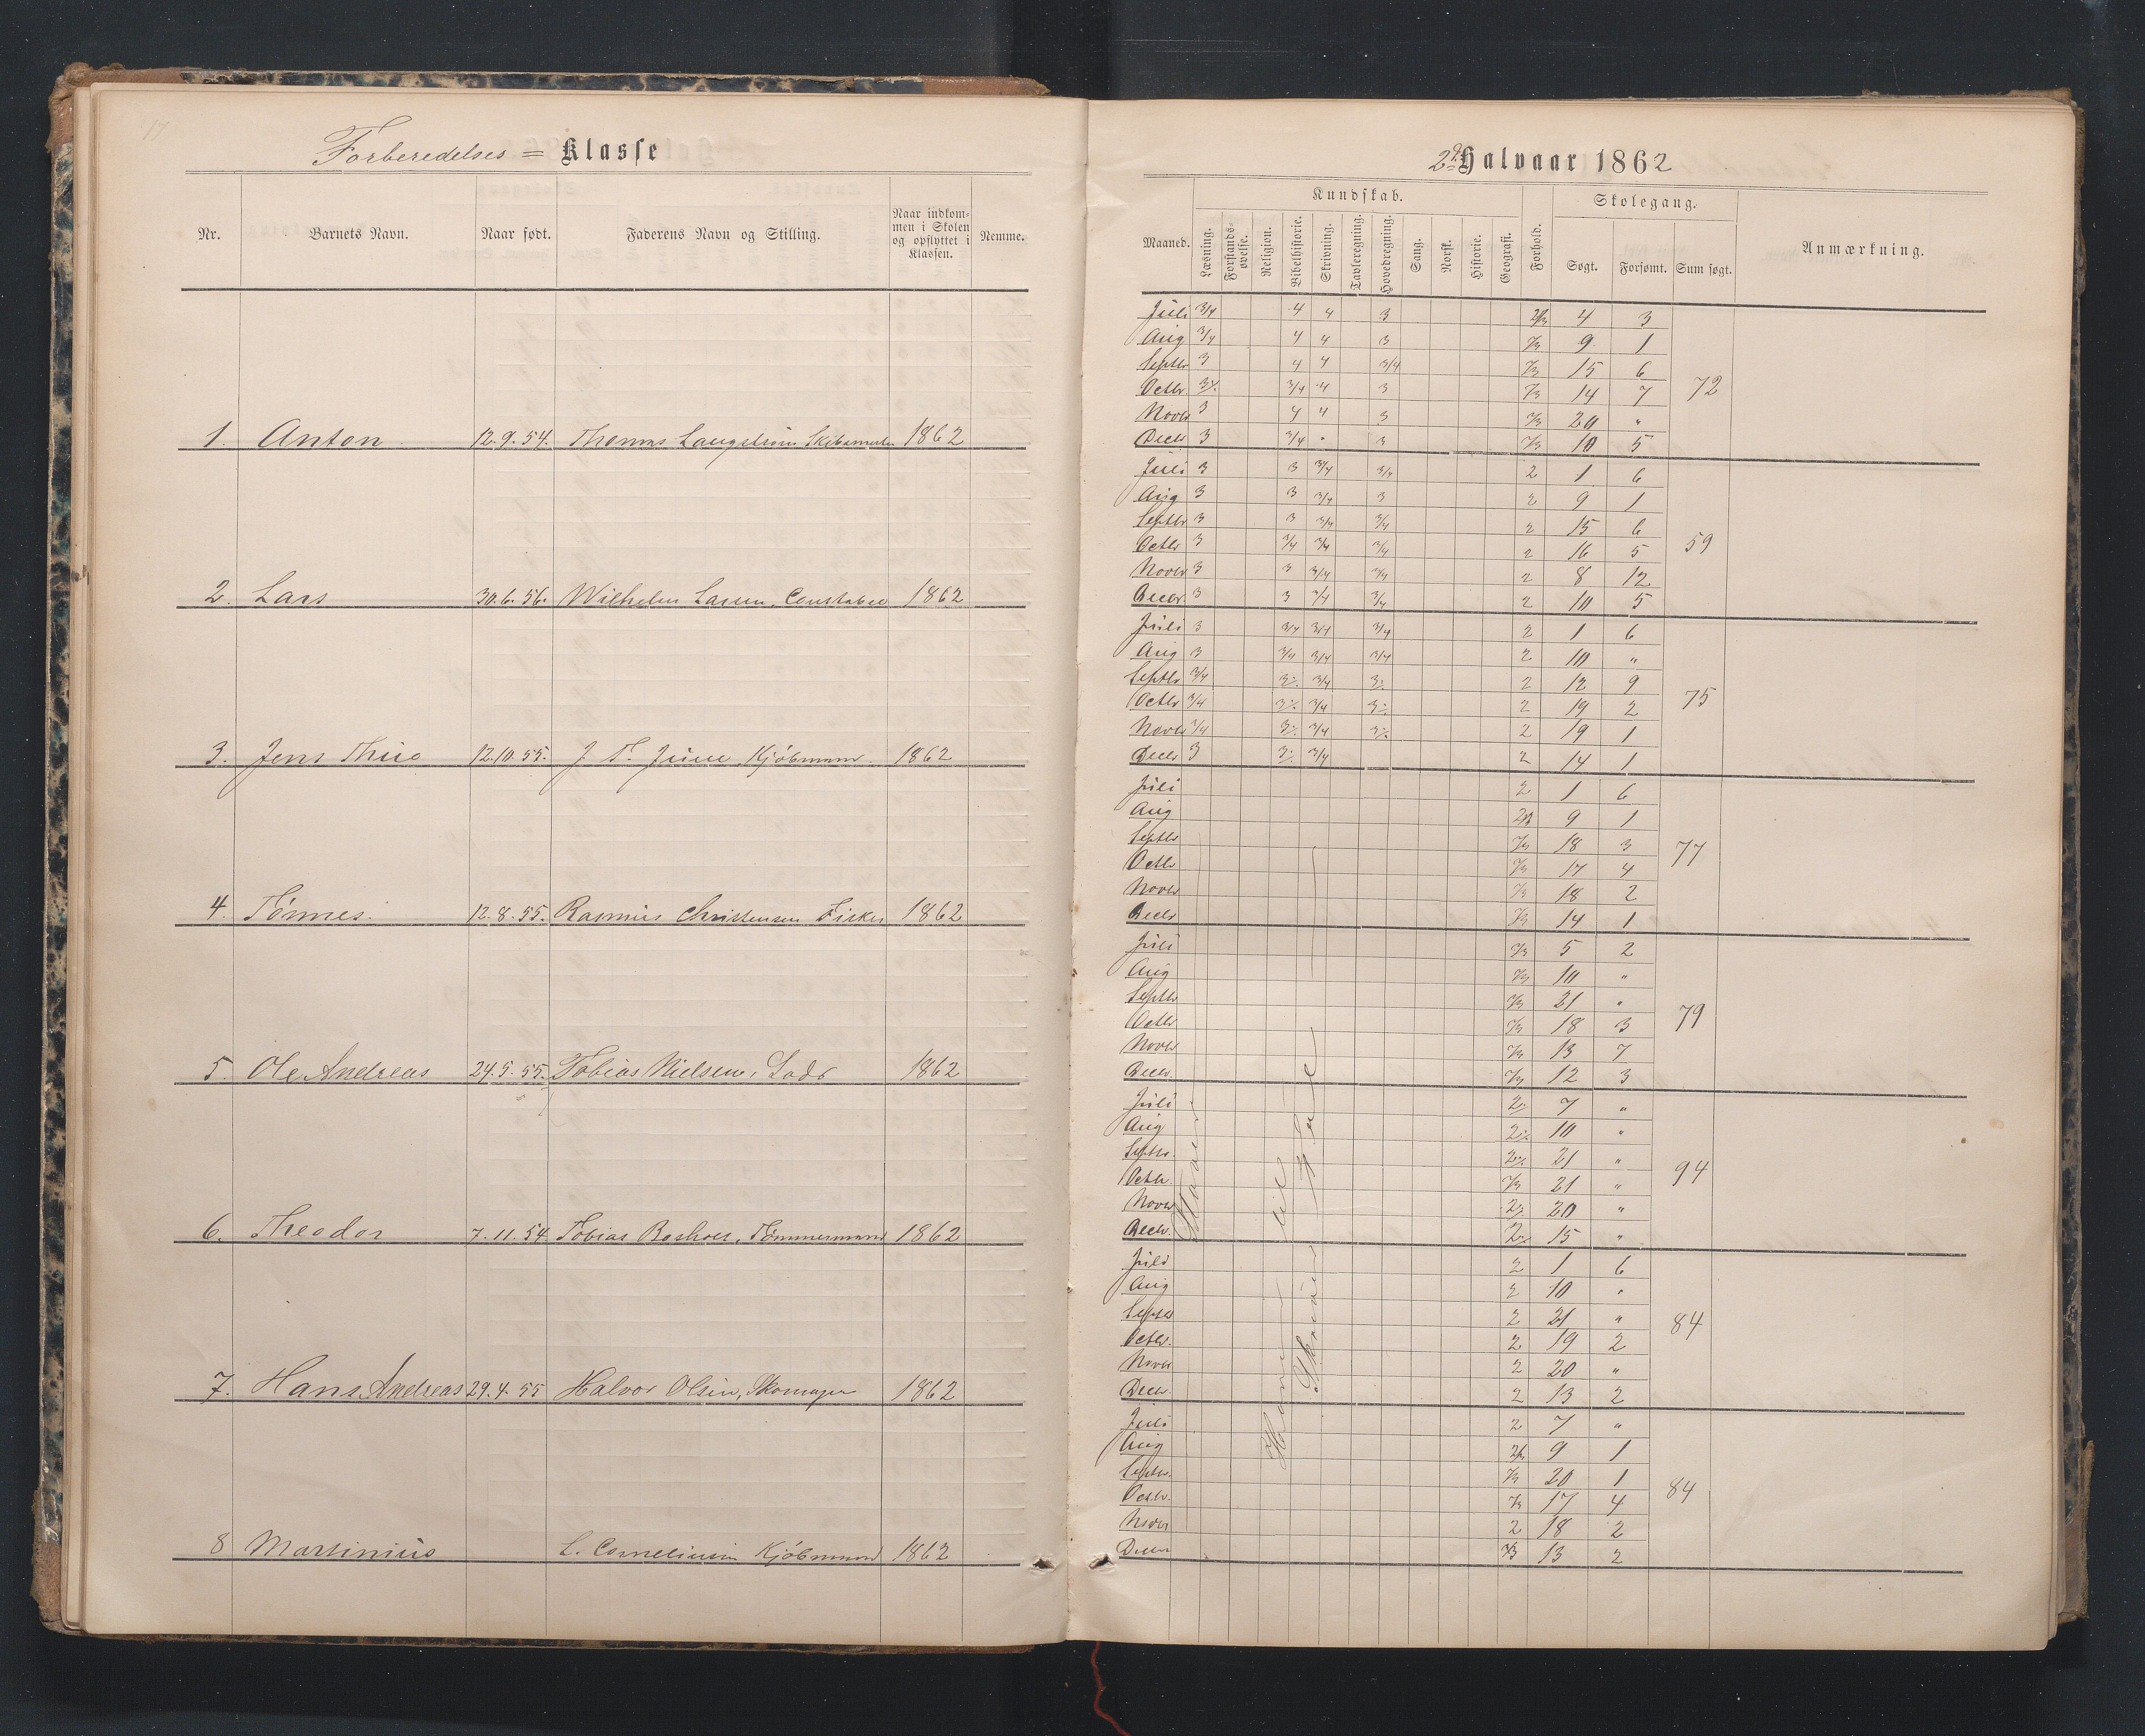 Forberedelses = Klasse
Nr. Barnets Navn. Naar født. Faderens Navn og Stilling. Naar indkommen i Skolen og opflyttet i Klassen. Nemme.
1. Anton 12.9.54. Thomas 1862
2. Lars 30.6.56. Wilhelm Larsen, Constabel 1862
3. Jens Thue 12.10.55. J. T. Juul, Kjöbmand 1862
4. Tönnes. 12.8.55. Rasmus Christensen Fisker 1862
5. Ole Andreas 24.5.55. Tobias Nielsen, Lods 1862
6. Theodor 7.11.54 Tobias Tömmermand 1862
7. Hans Andreas 29.4.55 Halvor Olsen, Skomager 1862
8 Martinius L. Corneliusen Kjöbmand 1862
2d Halvaar 1862
Maaned. Kundskab. Forhold. Skolegang. Anmærkning.
Læsning. Forstandsøvelse. Religion. Bibelhistorie. Skrivning. Tavleregning. Hovedregning. Sang. Norsk. Historie. Geografi. Søgt. Forsømt. Sum søgt.
Juli 3/4 4 4 3 2/3 4 3
Aug 3/4 4 4 3 2/3 9 1
Septbr 3 4 4 3/4 2/3 15 6
Octbr 3% 3/4 4 3 2/3 14 7 72
Novbr 3 4 4 3 2/3 20 "
Decbr 3 3/4 " 3 2/3 10 5
Juli 3 3 3/4 3/4 2 1 6
Aug 3 3 3/4 3 2 9 1
Septbr 3 3 3/4 3/4 2 15 6
Octbr 3 3/4 3/4 3/4 2 16 5 59
Novbr 3 3 3/4 3/4 2 8 12
Decbr. 3 3 3/4 3/4 2 10 5
Juli 3 3/4 3/4 3/4 2 1 6
Aug 3 3/4 3/4 3/4 2 10 "
Septbr 3/4 3% 3/4 3% 2 12 9
Octbr 3/4 3% 3/4 3% 2 19 2 75
Novbr 3/4 3% 3/4 3% 2 19 1
Decbr 3 3% 3/4 2 14 1
Juli 2 1 6
Aug 2/3 9 1
Septbr 2/3 18 3
Octbr 2/3 17 4 77
Novbr 2/3 18 2
Decbr 2/3 14 1
Juli 2/3 5 2
Aug 2/3 10 "
Septbr 2/3 21 "
Octbr 2/3 18 3 79
Novbr 2/3 13 7
Decbr. 2/3 12 3
Juli 2% 7 "
Aug 2% 10 "
Septbr. 2% 21 "
Octbr. 2/3 21 " 94
Novbr 2% 20 "
Decbr. 2% 15 "
Juli 2 1 6
Aug 2 10 "
Septbr 2 21 "
Octbr. 2 19 2 84
Novbr 2 20 "
Decbr. 2 13 2
Juli 2 7 "
Aug 2/3 9 1
Septbr. 2/3 20 1
Octbr. 2/3 17 4 84
Novbr 2 18 2
Decbr 2/3 13 2